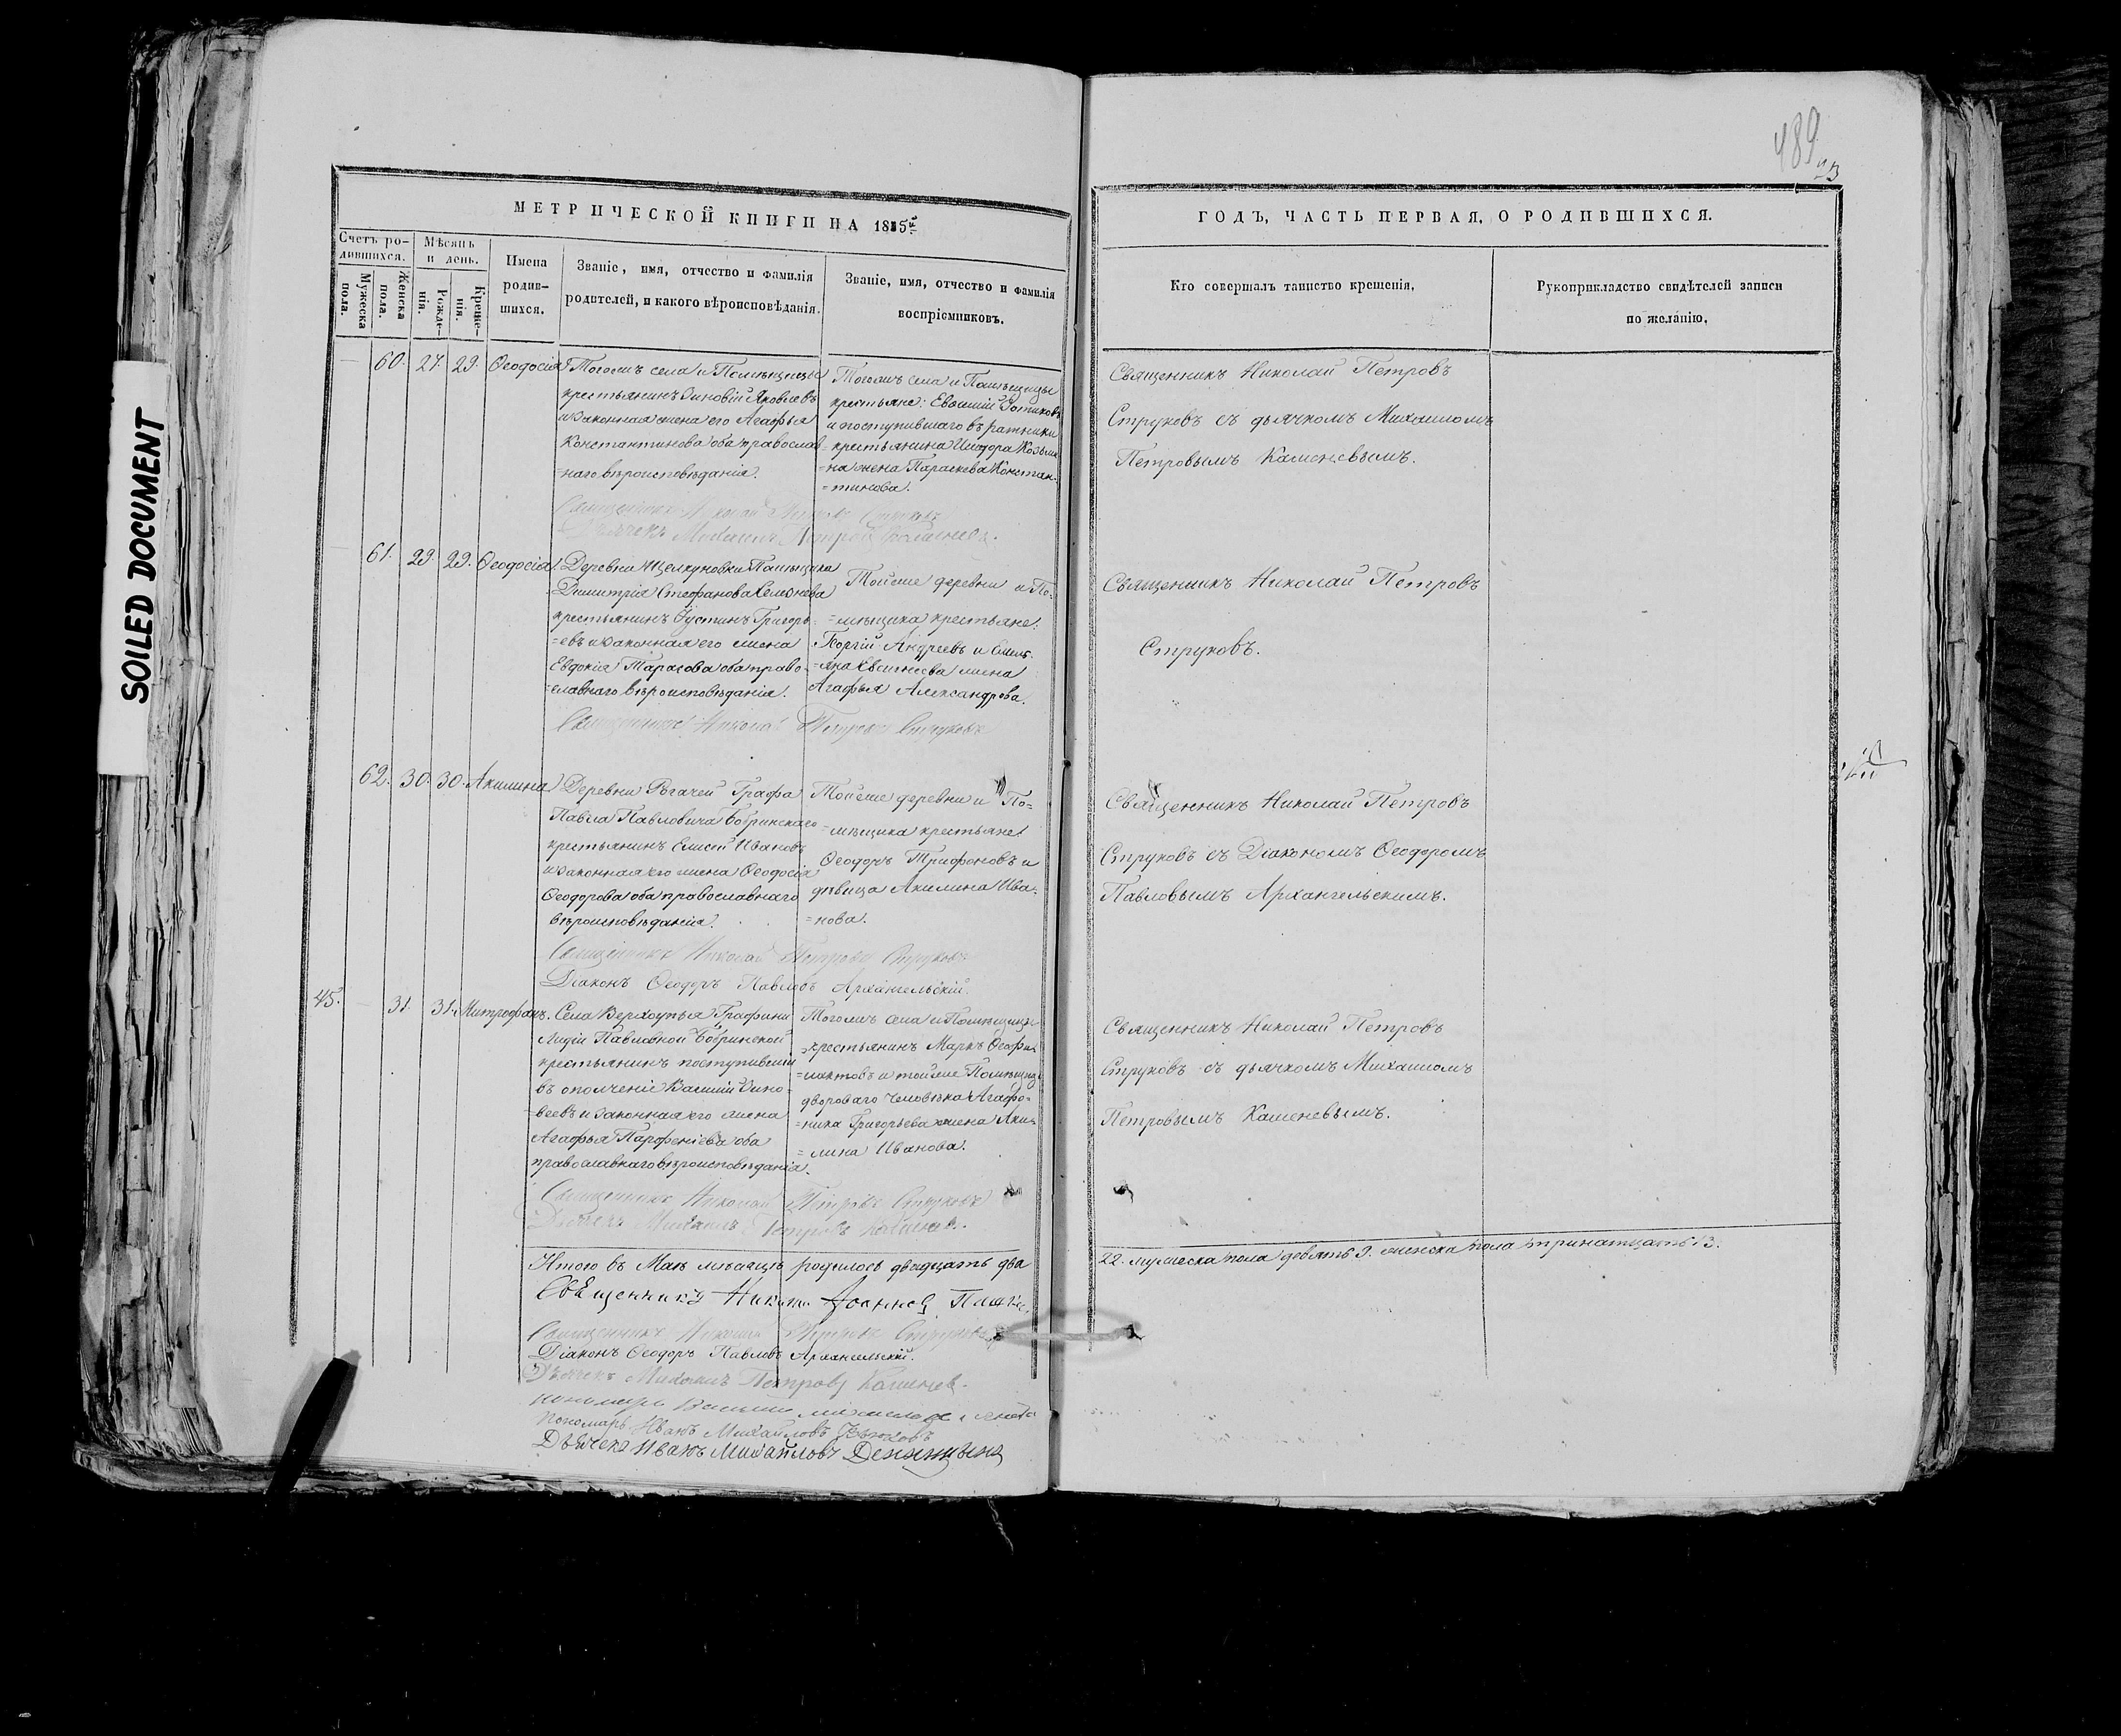 SOILED DOCUMENT
489
23
МЕТРИЧЕСКОЙ КНИГИ НА 1855й
ГОДЪ, ЧАСТЬ ПЕРВАЯ, О РОДИВШИХСЯ.
Счетъ ро-
дившихся.
Мужеска
пола.
Женска
пола.
Мѣсяцъ
и день.
Рожде-
нія.
Креще-
нія.
Имена
родив-
шихся.
Званіе, имя, отчество и фамилія
родителей, и какого вѣроисповѣданія.
Званіе, имя, отчество и фамилія
воспріемниковъ.
Кто совершалъ таинство крещенія.
Рукоприкладство свидѣтелей записи
по желанію.
60. 27. 29. Ѳеодосія
Тогожъ села и Помѣщицы
крестьянинъ Зиновій Яковлевъ
и законная жена его Агафья
Константинова оба православ-
=наго вѣроисповѣданія.
Тогожъ села и Помѣщицы
крестьяне: Евѳимій Зотиковъ
и поступившаго въ ратники
крестьянина Исидора Козьми-
=на жена Параскева Констан-
=тинова.
Священникъ Николай Петровъ
Струковъ съ дьячкомъ Михаиломъ
Петровымъ Каменевымъ.
Священникъ Николай Петровъ Струковъ
Дьячекъ Михаилъ Петровъ Каменевъ.
61. 29. 29. Ѳеодосія
Деревни Щелкуновки Помѣщика
Димитрія Стефанова
крестьянинъ Іустинъ Григорь-
=евъ и законная его жена
Евдокія Тарасова оба право-
=славнаго вѣроисповѣданія.
Тойже деревни и По-
=мѣщика крестьяне:
Георгій Андреевъ и Емель-
=яна Евсигнеева жена
Агафья Александрова.
Священникъ Николай Петровъ
Струковъ.
Священникъ Николай Петровъ Струковъ
62. 30. 30. Акилина
Деревни Рогачей Графа
Павла Павловича Бобринскаго
крестьянинъ Елисей Ивановъ
и законная его жена Ѳеодосія
Ѳеодорова оба православнаго
вѣроисповѣданія.
Тойже деревни и По=
=мѣщика крестьяне:
Ѳеодоръ Трифоновъ и
дѣвица Акилина Ива-
=нова.
Священникъ Николай Петровъ
Струковъ съ Діакономъ Ѳеодоромъ
Павловымъ Архангельскимъ.
Священникъ Николай Петровъ Струковъ
Діаконъ Ѳеодоръ Павловъ Архангельскій.
45. 31. 31. Митрофанъ.
Села Верхоупья Графини
Лидіи Павловной Бобринской
крестьянинъ поступившій
въ ополченіе Василій Зино-
=веевъ и законная его жена
Агафья Парфеніева оба
православнаго вѣроисповѣданія.
Тогожъ села и Помѣщицы
крестьянинъ Маркъ Ѳеофи-
=лактовъ и тойже Помѣщицы
двороваго человѣка Агафо-
=ника Григорьева жена Аки-
=лина Иванова.
Священникъ Николай Петровъ
Струковъ съ дьячкомъ Михаиломъ
Петровымъ Каменевымъ.
Священникъ Николай Петровъ Струковъ
Дьячекъ Михаилъ Петровъ Каменевъ.
Итого въ Маѣ мѣсяцѣ родилось двадцать два
22. мужеска пола девять 9. женска пола тринатцать 13.
Священникъ Іоанновъ
Священникъ Николай Петровъ Струковъ
Діаконъ Ѳеодоръ Павловъ Архангельскій.
Дьячекъ Михаилъ Петровъ Каменевъ.
Пономарь Василий
Пономарь Иванъ Михайловъ
Дьячекъ Иванъ Михайловъ